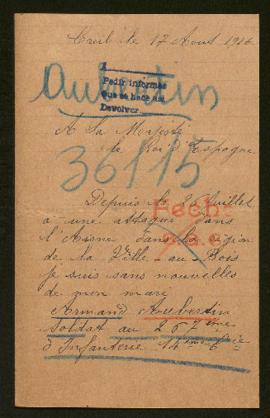 Creil le 17 Aout 1916
Aubertin
Pedir informes
que se hace así
Devolver
A Sa Majesté
le Roi d'Espagne
36115
Depuis le 26 Juillet
a une attaque dans
l'Aisne dans la région
de la Ville au Bois
je suis sans nouvelles
de mon mari
Armand Aubertin
Soldat au 267ème
d'Infanterie